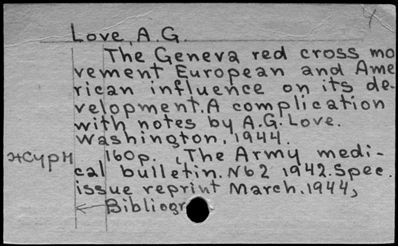 Love, A.G.
The Geneva red cross mo
vement European and Ame
rican influence on its de-
velopment. A complication
with notes by A.G. Love.
Washington, 1944.
журн 160p. "The Army medi-
cal bulletin. №62 1942. Spec.
issue reprint March. 1944,
Bibliogr